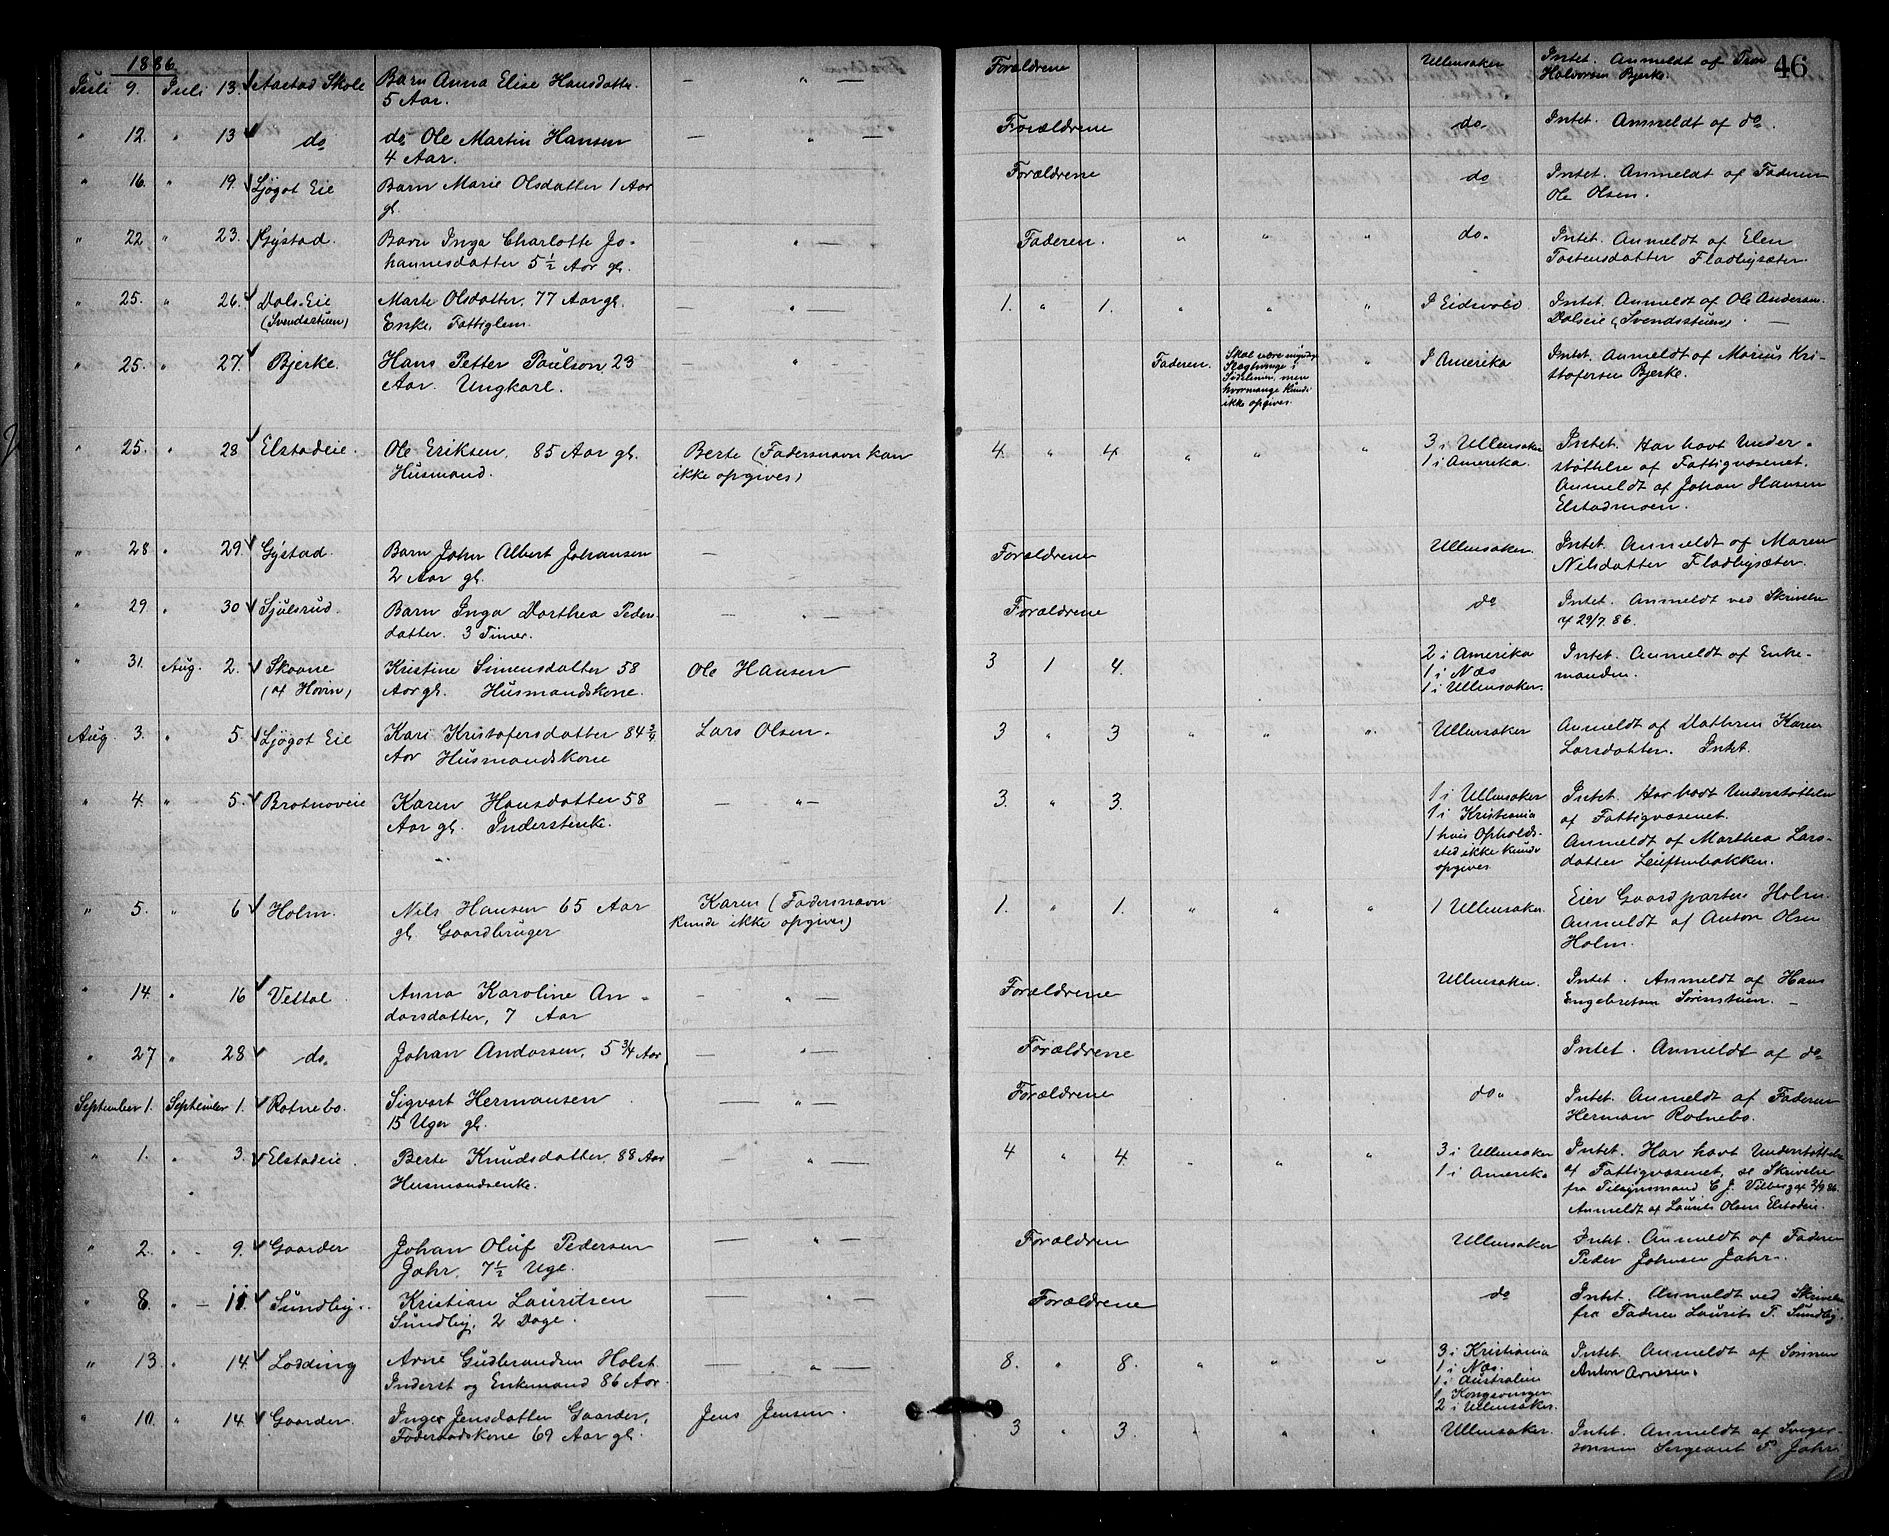 1886
46
Juli 9. Juli 13. Aastad Skole Barn Anna Elise Hansdatter — " — Forældrene Ullensaker Intet. Anmeldt af
5 Aar. Halvorsen Bjerke.
" 12. " 13 do do Ole Martin Hansen — " — Forældrene do Intet. Anmeldt af do.
4 Aar.
" 16. " 19. Ljøgot Eie Barn Marie Olsdatter 1 Aar Forældrene do Intet. Anmeldt af Faderen
gl. Ole Olsen.
" 22 " 23. Gystad. Barn Inga Charlotte Jo- " — Faderen. " " " do. Intet. Anmeldt af Elen
hannesdatter 5 1/2 Aar gl. Tostensdatter Fladbysæter.
" 25. " 26. Dals Eie Marte Olsdatter, 77 Aar gl. — " — 1. " 1. " " " I Eidsvold Intet. Anmeldt af Ole Andersen
(Svendsstuen) Enke. Fattiglem. Dalseie (Svendsstuen). —
" 25. " 27. Bjerke. Hans Petter Paulsen 23 — " Faderen. Skal være myndig " I Amerika Intet. Anmeldt af Marius Kri-
Aar. Ungkarl. Slægtninge i stofersen Bjerke.
Sidelinie, men
hvormange kunde
ikke opgives.
" 25. " 28 Elstadeie. Ole Eriksen. 85 Aar gl. Berte (Fadersnavn kan 4. " 4 " " " 3 i Ullensaker Intet. Har havt Under-
Husmand. ikke opgives) 1 i Amerika. støttelse af Fattigvæsenet.
Anmeldt af Johan Hansen
Elstadmoen.
" 28. " 29. Gystad. Barn John Albert Johansen — Forældrene Ullensaker. Intet. Anmeldt af Maren
2 Aar gl. Nilsdatter Fladbysæter.
" 29. " 30 Sjulsrud. Barn Inga Dorthea Peders- — " — Forældrene do Intet. Anmeldt ved Skrivelse
datter. 3 Timer. af 29/7. 86.
" 31. Aug. 2. Skaane Kristine Simensdatter 58 Ole Hansen 3 1 4. 2 i Amerika Intet. Anmeldt af Enke-
(af Hovin) Aar gl. Husmandskone. 1 i Næs manden.
1 i Ullensaker.
Aug. 3. " 5. Ljøgot Eie Kari Kristofersdatter 84 3/4 Lars Olsen. 3 " 3 " " " Ullensaker Anmeldt af Datteren Karen
Aar Husmandskone Larsdatter. Intet.
" 4. " 5. Brotnoveie Karen Hansdatter 58 — " — 3. " 3. 1 i Ullensaker Intet. Har havt Understøttelse
Aar gl. Inderstenke. 1 i Kristiania af Fattigvæsenet.
1 hvis Opholds- Anmeldt af Marthea Lars-
sted ikke kunde datter Leiftenbakken.
opgives
" 5. " 6 Holm. Nils Hansen 65 Aar Karen (Fadersnavn 1. " 1. " " " 1 Ullensaker. Eier Gaardparten Holm.
gl. Gaardbruger kunde ikke opgives) Anmeldt af Anton Olsen
Holm.
" 14. " 16 Vettal. Anna Karoline An- — " — Forældrene Ullensaker. Intet. Anmeldt af Hans
dorsdatter, 7 Aar Engebretsen Sørenstuen. —
" 27 " 28 do. Johan Andorsen, 5 3/4 Aar — " — Forældrene Intet. Anmeldt af do
September 1. September 1. Rotnebo. Sigvart Hermansen — " — Forældrene do. Intet. Anmeldt af Faderen
15 Uger gl. Herman Rotnebo.
" 1. " 3. Elstadeie. Berte Knudsdatter, 88 Aar — " — 4 " 4. " " " 3 i Ullensaker Intet. Har havt Understøttelse
Husmandsenke. 1 i Amerika af Fattigvæsenet, se Skrivelse
fra Tilsynsmand C J. Vilberg af 2/9 86.
Anmeldt af Laurits Olsen Elstadeie.
" 2. " - 9. Gaarder Johan Oluf Pedersen — " — Forældrene Ullensaker Intet. Anmeldt af Faderen
Jahr. 7 1/2 Uge. Peder Johnsen Jahr.
" 8. " - 11. Sundby. Kristian Lauritsen — " — Forældrene do Intet. Anmeldt ved Skrivelse
Sundby, 2 Dage. fra Faderen Laurits T. Sundby.
" 13. " 14. Lodding Arne Gudbrandsen Holst. — " — 8. " 8. " " " 3 i Kristiania Intet. Anmeldt af Sønnen
Inderst og Enkemand 86 Aar. 1 i Næs Anton Arnesen.
1 i Australien
1 Kongsvinger
2 i Ullensaker.
" 10. " 14. Gaarder. Inger Jensdatter Gaarder, Jens Jensen. 3 " 3. " " " Ullensaker. Intet. Anmeldt af Sviger-
Føderaadskone 69 Aar gl. sønnen Sergeant P. Jahr